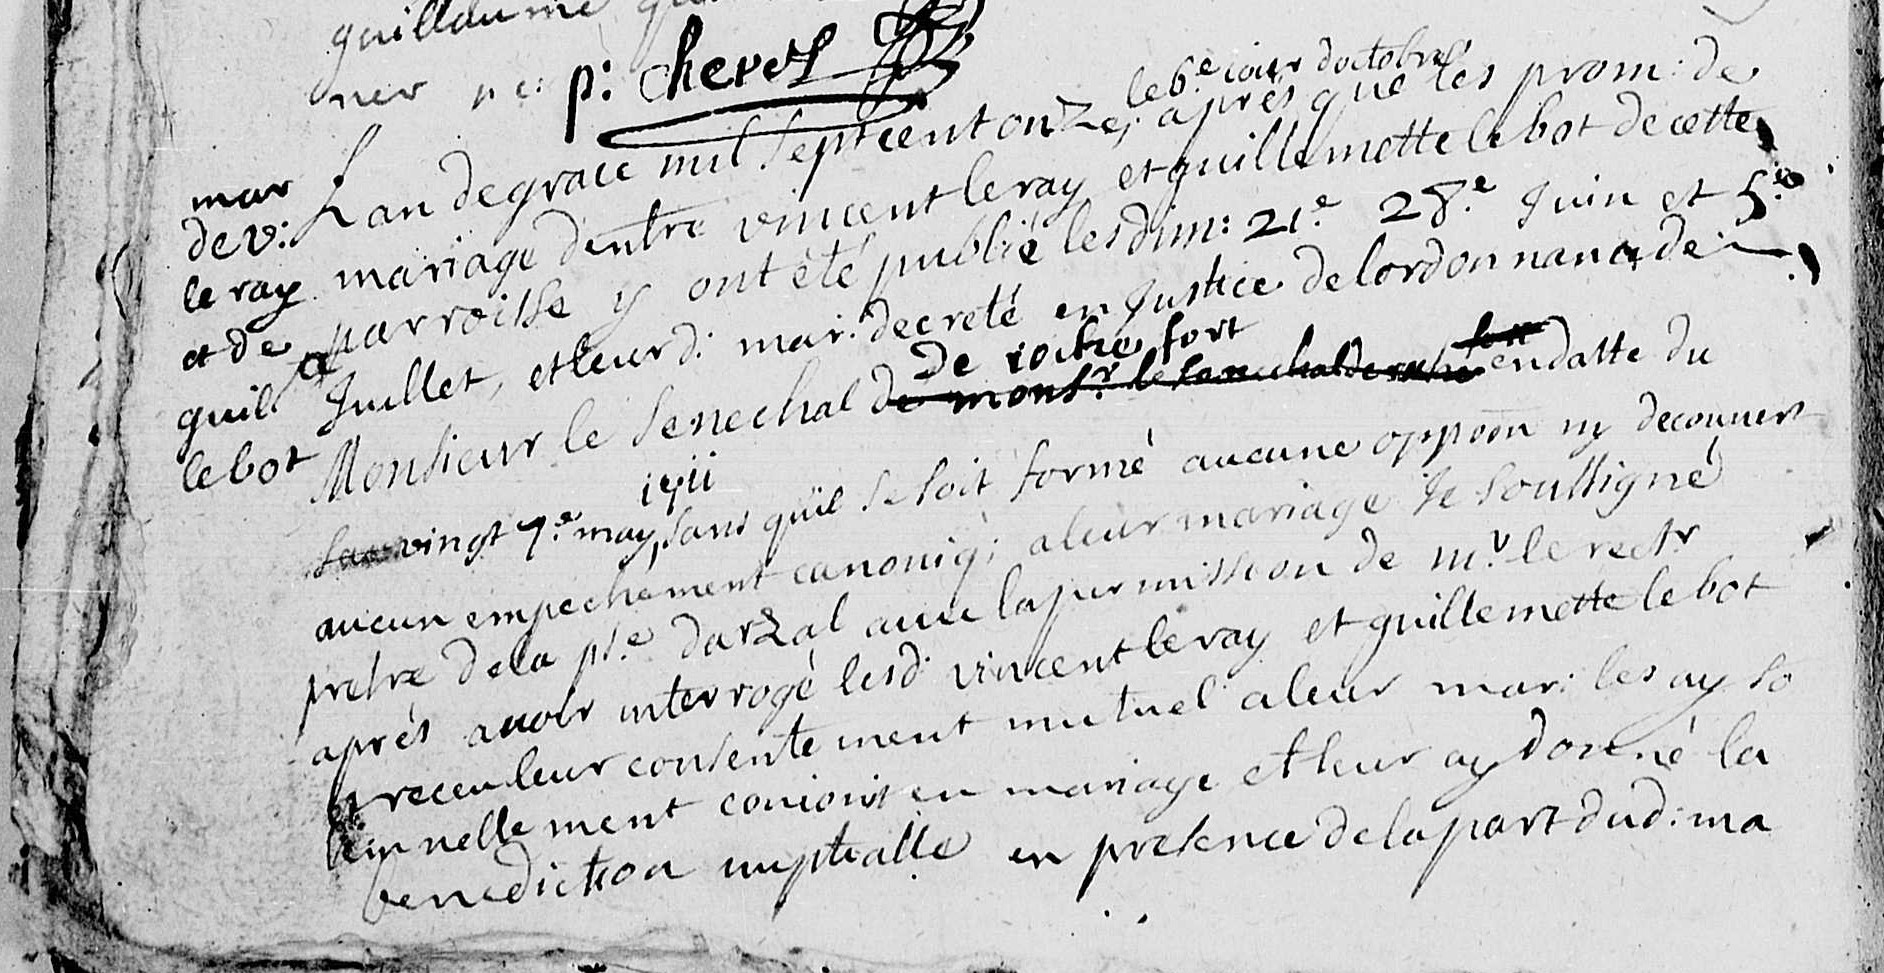 guillaume
ner pe: p: cheves
le 6.e iour doctobre
mar Lan degrace mil septcent onze, aprés que les prom: de
de v: mariage dentre vincent le ray et guillemette le bot de cette
le ray parroisse y ont été publié les dim: 21.e 28.e Juin et 5.e
et de Juillet, et leur d: mar: decreté en Justice de lordonnance de
guil: Monsieur le senechal de mons.r le senechal de de rochefort en datte du
le bot
vingt 7.e may, 1711 sans quil se soit formé aucune oppoon ny decouvert
aucun empechement canoniq: a leur mariage Je soussigné
pretre de la pse darzal avec la permission de m.r le rectr
aprés avoir interrogé lesd: vincent le ray et guillemette le bot
et receu leur consentement mutuel a leur mar: les ay so
lemnellement conioint en mariage et leur ay donné la
benediction nuptialle en presence de la part dud: ma